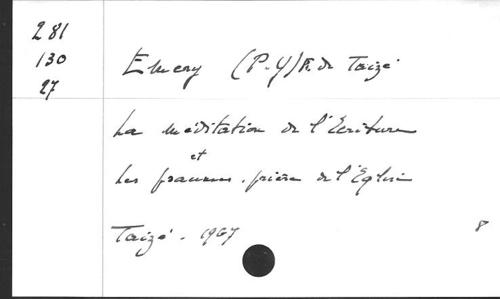 281
130
27
Emery (P-Y) fr. de Taizé
La méditation de l'Ecriture
et
Les psaumes, prière de l'Eglise
Taizé - 1967
8